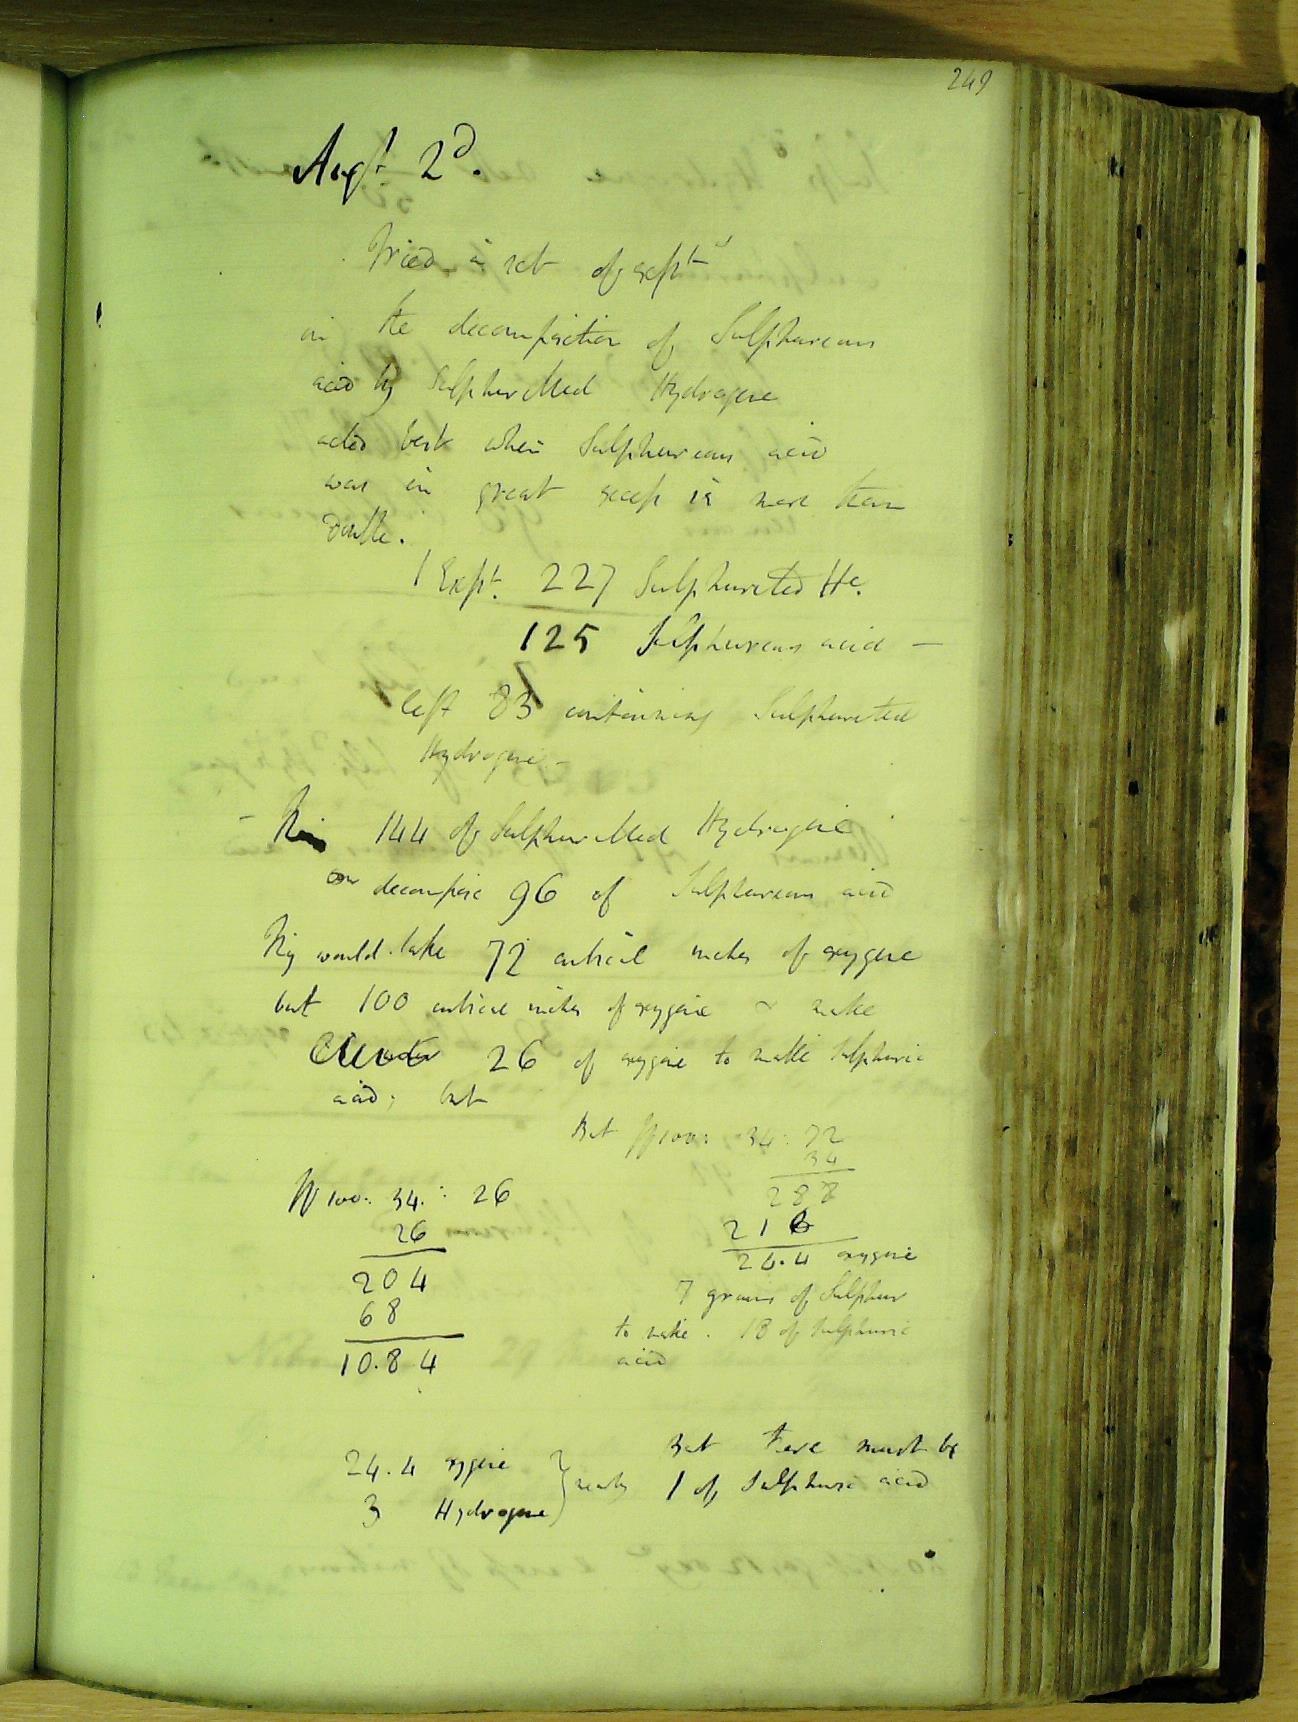 249
Augt 2d.
Tried a set of expts
on the decomposition of Sulphureous
acid by Sulphuretted Hydrogene
acted best when Sulphureous acid
was in great excess ie more than
Double.
1 Expt. 227 Sulphureted He.
125 Sulphureous acid —
left 83 containing Sulphureted
Hydrogene —
- 144 of Sulphuretted Hydrogene
decompose 96 of Sulphureous acid
would take 72 cubical inches of oxygene
but 100 cubical inches of oxygene make
26 of oxygene to make Sulphuric
acid; but
But If 100: 34: 72
34
288
216
24.4 oxygene
7 grains of Sulphur
to make. 18 of Sulphuric
acid
If 100: 34.: 26
26
204
68
10.84
24.4 oxygene
3 Hydrogene } nearly
But there must be
1 of Sulphuric acid